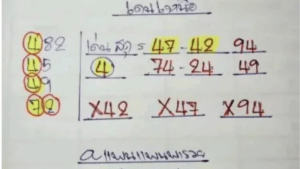 482 เด่นสุด = 47 - 42 94
45 4 74 - 24 49
49
72 X42 X47 X94